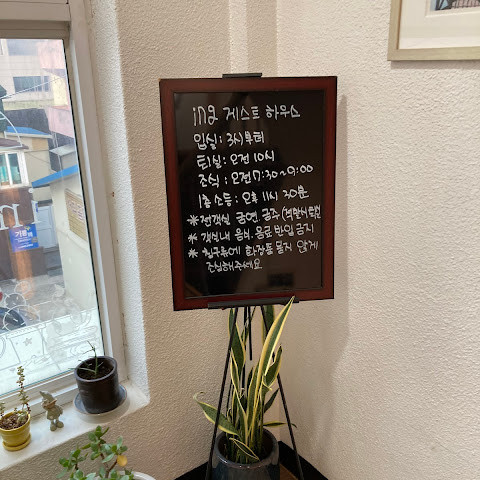 ing 게스트 하우스
입실: 3시부터
퇴실: 오전 10시
조식: 오전 7:30~9:00
1층 소등: 오후 11시 30분
*전객실 금연. 금주
*객실내 음식. 음료 반입 금지
*침구류에 화장품 묻지 않게
조심해주세요